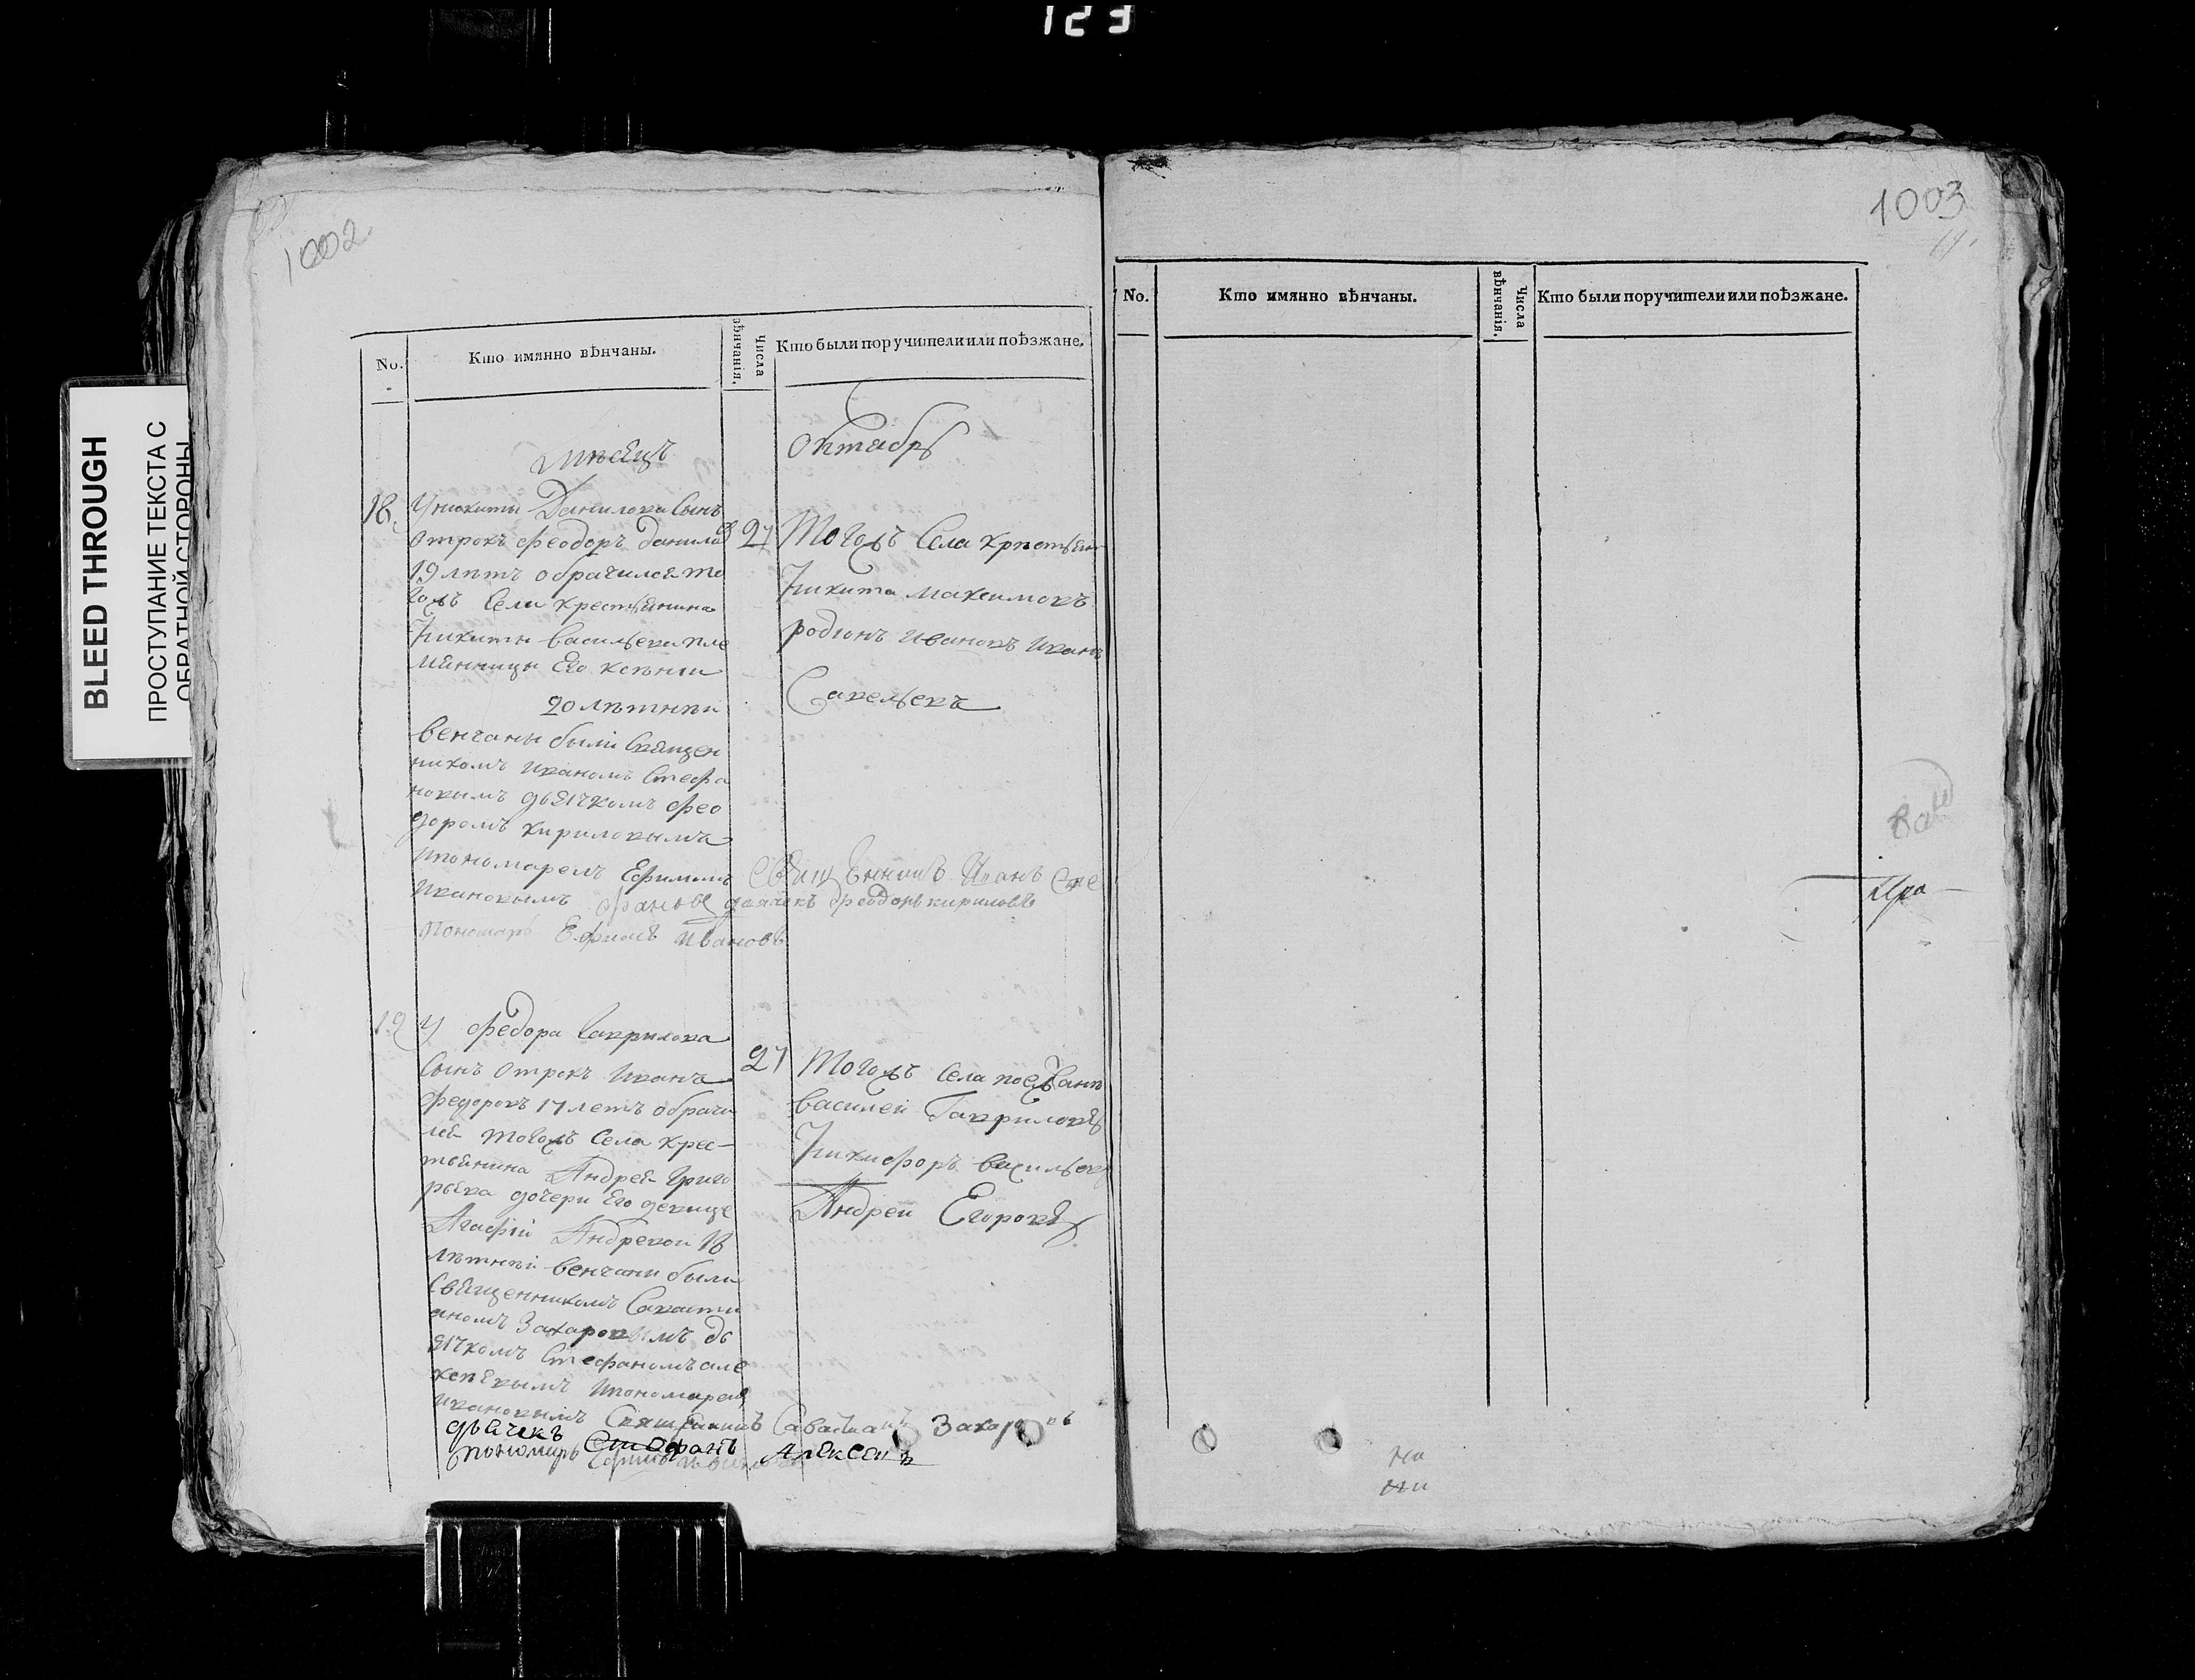 123
BLEED THROUGH
ПРОСТУПАНИЕ ТЕКСТА С
ОБРАТНОЙ СТОРОНЫ
1002
No.
Кто имянно вѣнчаны.
Числа
вѣнчанія.
Кто были поручители или поѣзжане.
Мѣсяцъ
Октябрь
18
Уникиты Данилова Сынъ
отрокъ Феодоръ Данилов
19 лѣтъ обрачился то
гожъ Села крестьянина
Никиты васильева пле
мянницы Его ксѣнии
20 лѣтнѣй
венчаны были Священ
никомъ иваномъ Стефа
новымъ дьячкомъ Фео
доромъ кириловымъ
ипономаремъ Ефимимъ
ивановымъ
27
Тогожъ Села крестьян
Никита максимовъ
родіонъ ивановъ иванъ
Савельевъ
Священникъ Иванъ Сте
фановъ дьячекъ Феодоръ кириловъ
Пономарь Ефимъ Ивановъ
19
У Федора Гаврилова
Сынъ отрокъ иванъ
Федоровъ 17 летъ обрачи
лся тогожъ Села крес-
тьянина Андрея Григо
рьева дочери Его девице
Агафіи Андревой 18
лѣтнѣй венчаны были
Священникомъ Савасти
аномъ Захаровымъ дь
ячкомъ Стефаномъ але
ксѣевымъ ипономарем
ивановымъ
27
Тогожъ Села поезжане
василей Гавриловъ
Никифоръ васильевъ
Андрей Егоровъ
Священникъ Савастианъ Захаровъ
дьячекъ Стефанъ Алексеивъ
пономарь Ефимъ Ивановъ
1003
No.
Кто имянно вѣнчаны.
Числа
вѣнчанія.
Кто были поручители или поѣзжане.